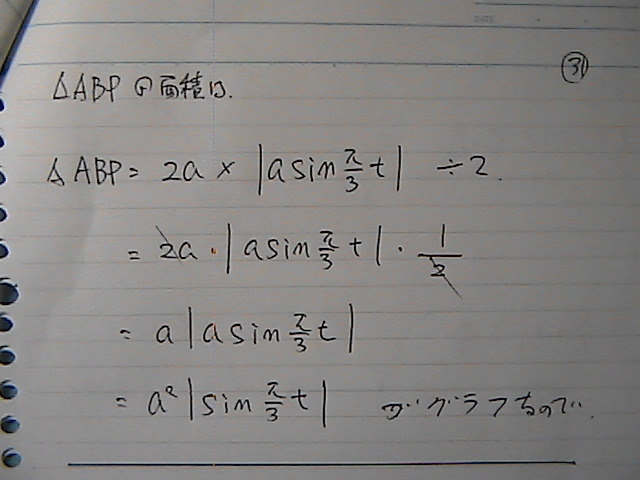 DATE
㉛
△ABPの面積は.
△ABP = 2a × |a sin π/3 t| ÷ 2.
= 2a・|a sin π/3 t|・1/2
= a|a sin π/3 t|
= a²|sin π/3 t| がグラフなので.